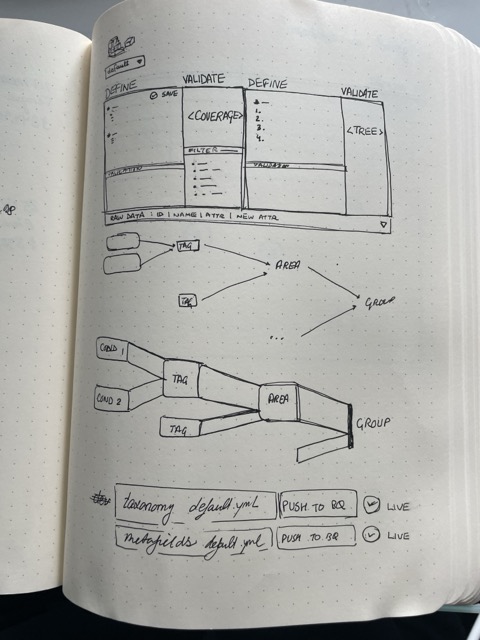 default
DEFINE
VALIDATE
DEFINE
VALIDATE
SAVE
<COVERAGE>
FILTER
1.
2.
3.
4.
<TREE>
VALIDATION
RAW DATA | ID | NAME | ATTR | NEW ATTR
TAG
AREA
TAG
GROUP
...
COND 1
COND 2
TAG
AREA
TAG
GROUP
taxonomy_default.yml
PUSH TO BQ
LIVE
metafields_default.yml
PUSH TO BQ
LIVE